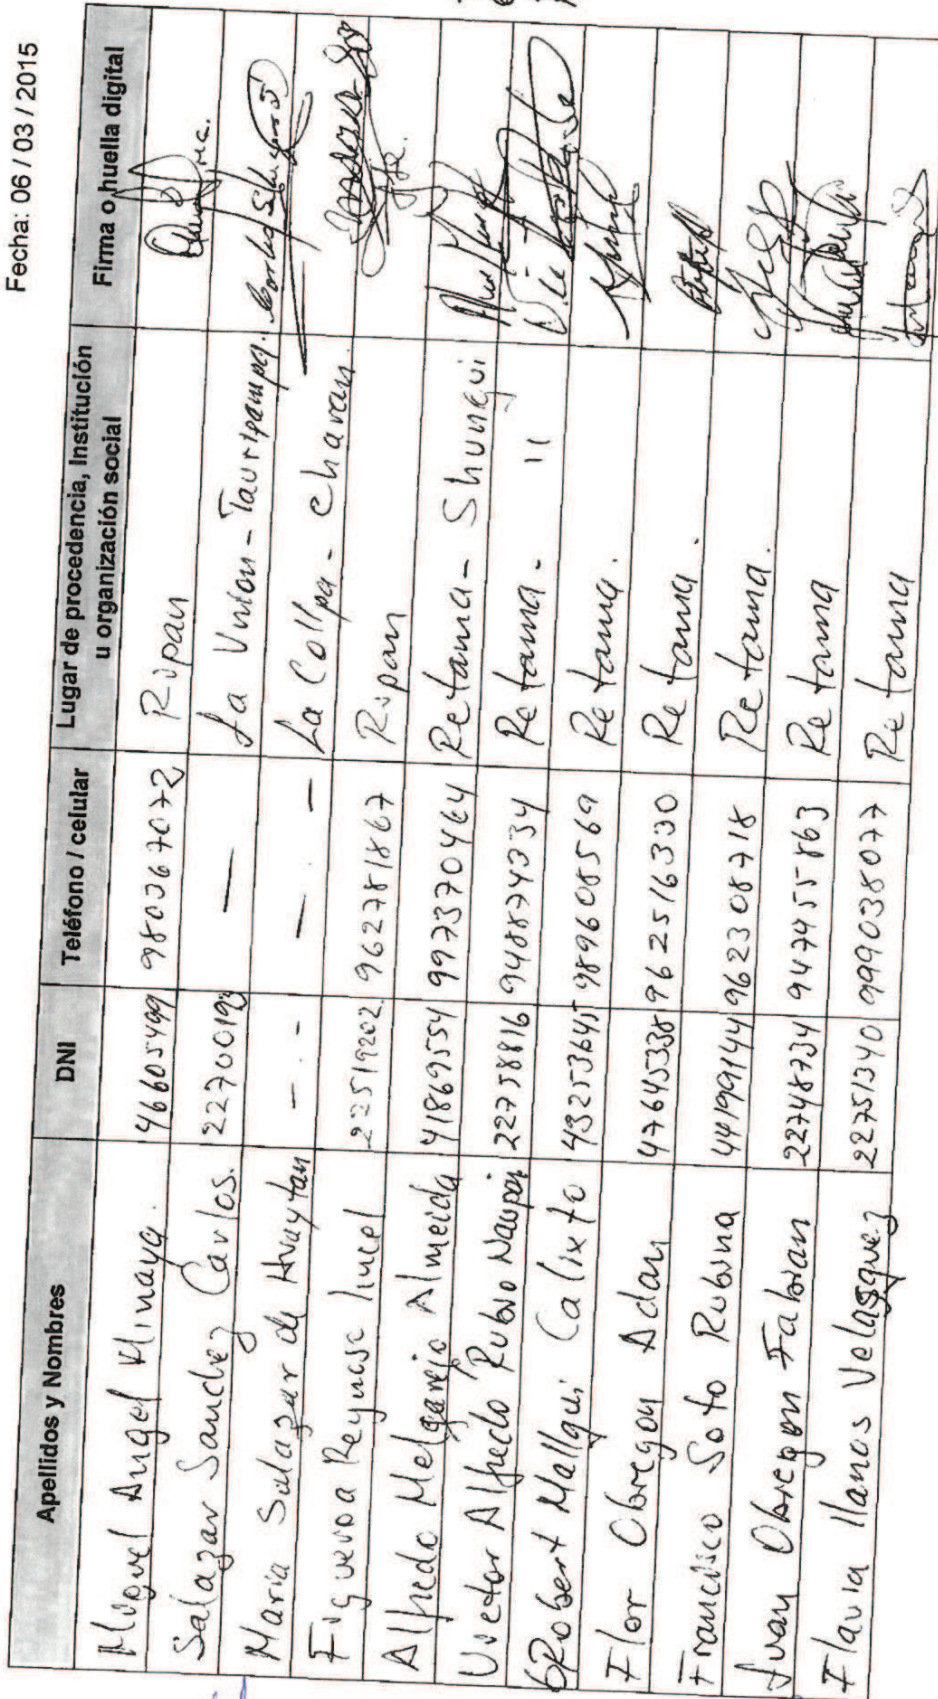 Fecha: 06 / 03 / 2015
Apellidos y Nombres DNI Teléfono / celular Lugar de procedencia, Institución u organización social Firma o huella digital
Miguel Angel Minaya. 46605499 980367072 Ripan
Salazar Sanchez Carlos. 22700192 — La Union - Tauripampa.
Maria Salazar de Huaytan - . - — . — La Collpa - Chavan.
Figueroa Reynoso 22519202. 962781867 Ripan
Alfredo Melgarejo Almeida 41869554 997370464 Retama - Shunqui
Victor Alfredo Rubio Naupa 22758816 948874334 Retama - "
Robert Mallqui Calixto 43253645 989608569 Retama.
Flor Obregon Adan 47645338 962516330 Retama.
Francisco Soto Rubina 44199144 962308718 Retama.
Juan Obregon Fabian 22748734 947455863 Retama
Flavia llanos Velasquez 22751340 999038077 Retama